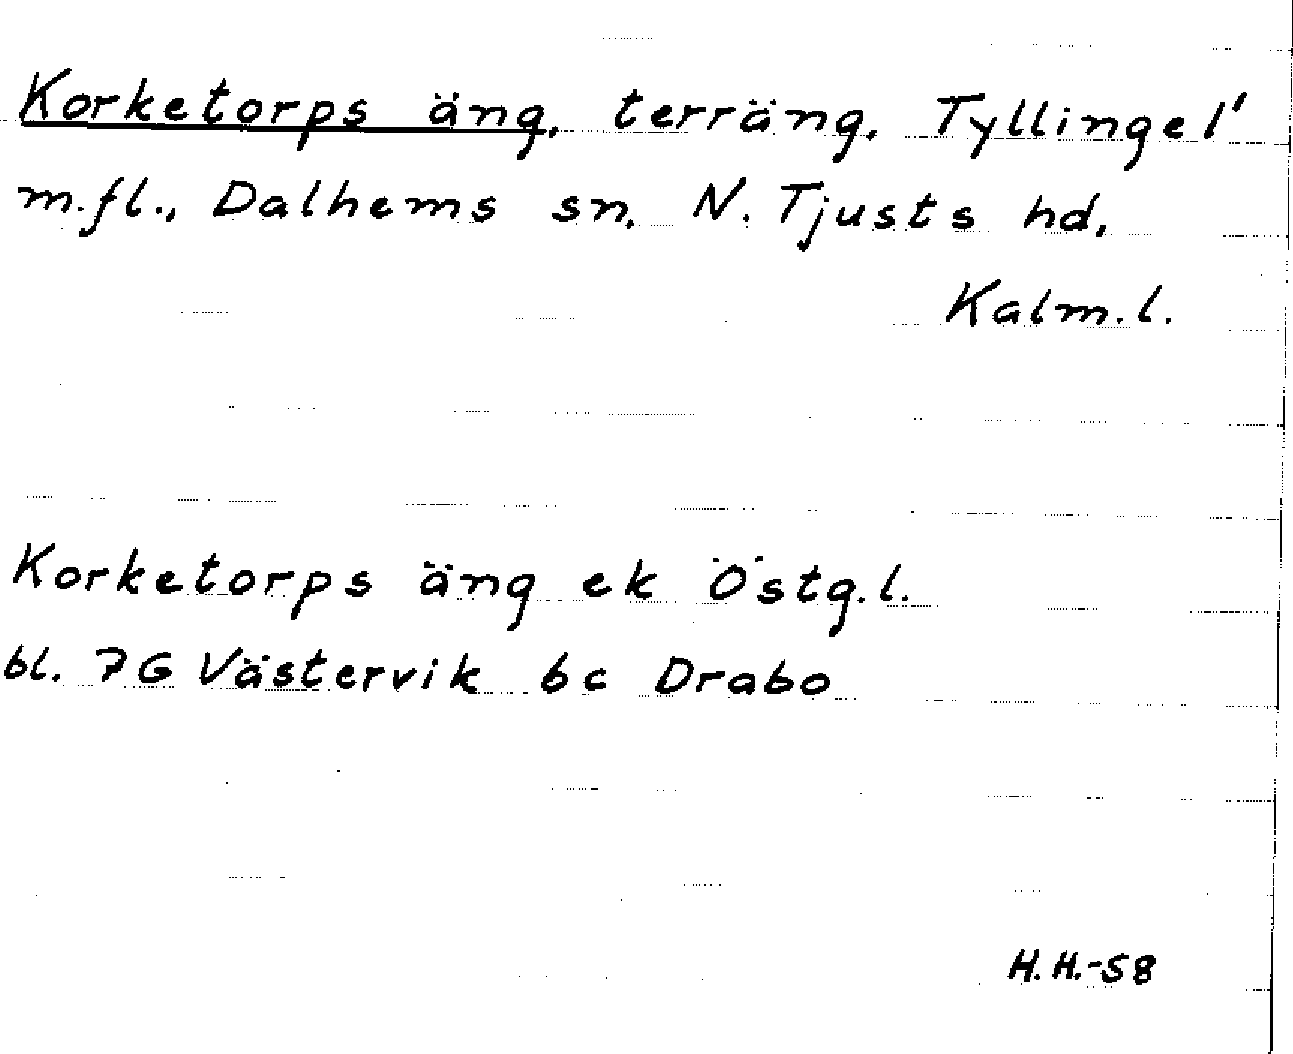 Korketorps äng, terräng, Tyllinge 1¹
m.fl., Dalhems sn, N. Tjusts hd,
Kalm.l.
Korketorps äng ek Östg.l.
bl. 7G Västervik 6c Drabo
H.H.-58